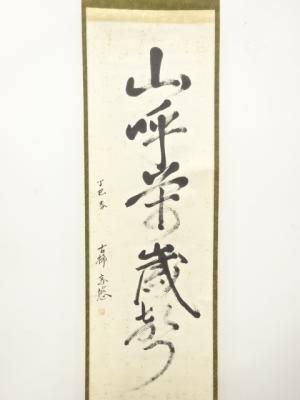 山呼萬歳聲
丁巳春
古稀